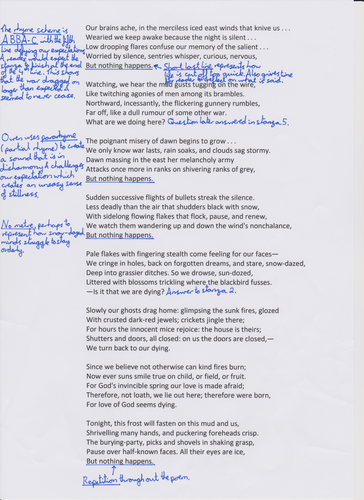 The rhyme scheme is
ABBA-C with the fifth
line defying our expectations.
A reader would expect the
stanza to finish at the end
of the 4th line. This shows
that the war dragged on
longer than expected &
seemed to never cease.
Owen uses pararhyme
(partial rhyme) to create
a sound that is in
disharmony & challenges
our expectation which
creates an uneasy sense
of stillness.
No metre, perhaps to
represent how snow-dazed
minds struggle to stay
orderly.
Our brains ache, in the merciless iced east winds that knive us . . .
Wearied we keep awake because the night is silent . . .
Low drooping flares confuse our memory of the salient . . .
Worried by silence, sentries whisper, curious, nervous,
But nothing happens. Short last line represents how
life is cut off too quick. Also gives time
for reader to reflect on what is said.
Watching, we hear the mad gusts tugging on the wire,
Like twitching agonies of men among its brambles.
Northward, incessantly, the flickering gunnery rumbles,
Far off, like a dull rumour of some other war.
What are we doing here? Question later answered in stanza 5.
The poignant misery of dawn begins to grow . . .
We only know war lasts, rain soaks, and clouds sag stormy.
Dawn massing in the east her melancholy army
Attacks once more in ranks on shivering ranks of grey,
But nothing happens.
Sudden successive flights of bullets streak the silence.
Less deadly than the air that shudders black with snow,
With sidelong flowing flakes that flock, pause, and renew,
We watch them wandering up and down the wind's nonchalance,
But nothing happens.
Pale flakes with fingering stealth come feeling for our faces—
We cringe in holes, back on forgotten dreams, and stare, snow-dazed,
Deep into grassier ditches. So we drowse, sun-dozed,
Littered with blossoms trickling where the blackbird fusses.
—Is it that we are dying? Answer to stanza 2.
Slowly our ghosts drag home: glimpsing the sunk fires, glozed
With crusted dark-red jewels; crickets jingle there;
For hours the innocent mice rejoice: the house is theirs;
Shutters and doors, all closed: on us the doors are closed,—
We turn back to our dying.
Since we believe not otherwise can kind fires burn;
Now ever suns smile true on child, or field, or fruit.
For God's invincible spring our love is made afraid;
Therefore, not loath, we lie out here; therefore were born,
For love of God seems dying.
Tonight, this frost will fasten on this mud and us,
Shrivelling many hands, and puckering foreheads crisp.
The burying-party, picks and shovels in shaking grasp,
Pause over half-known faces. All their eyes are ice,
But nothing happens.
Repetition throughout the poem